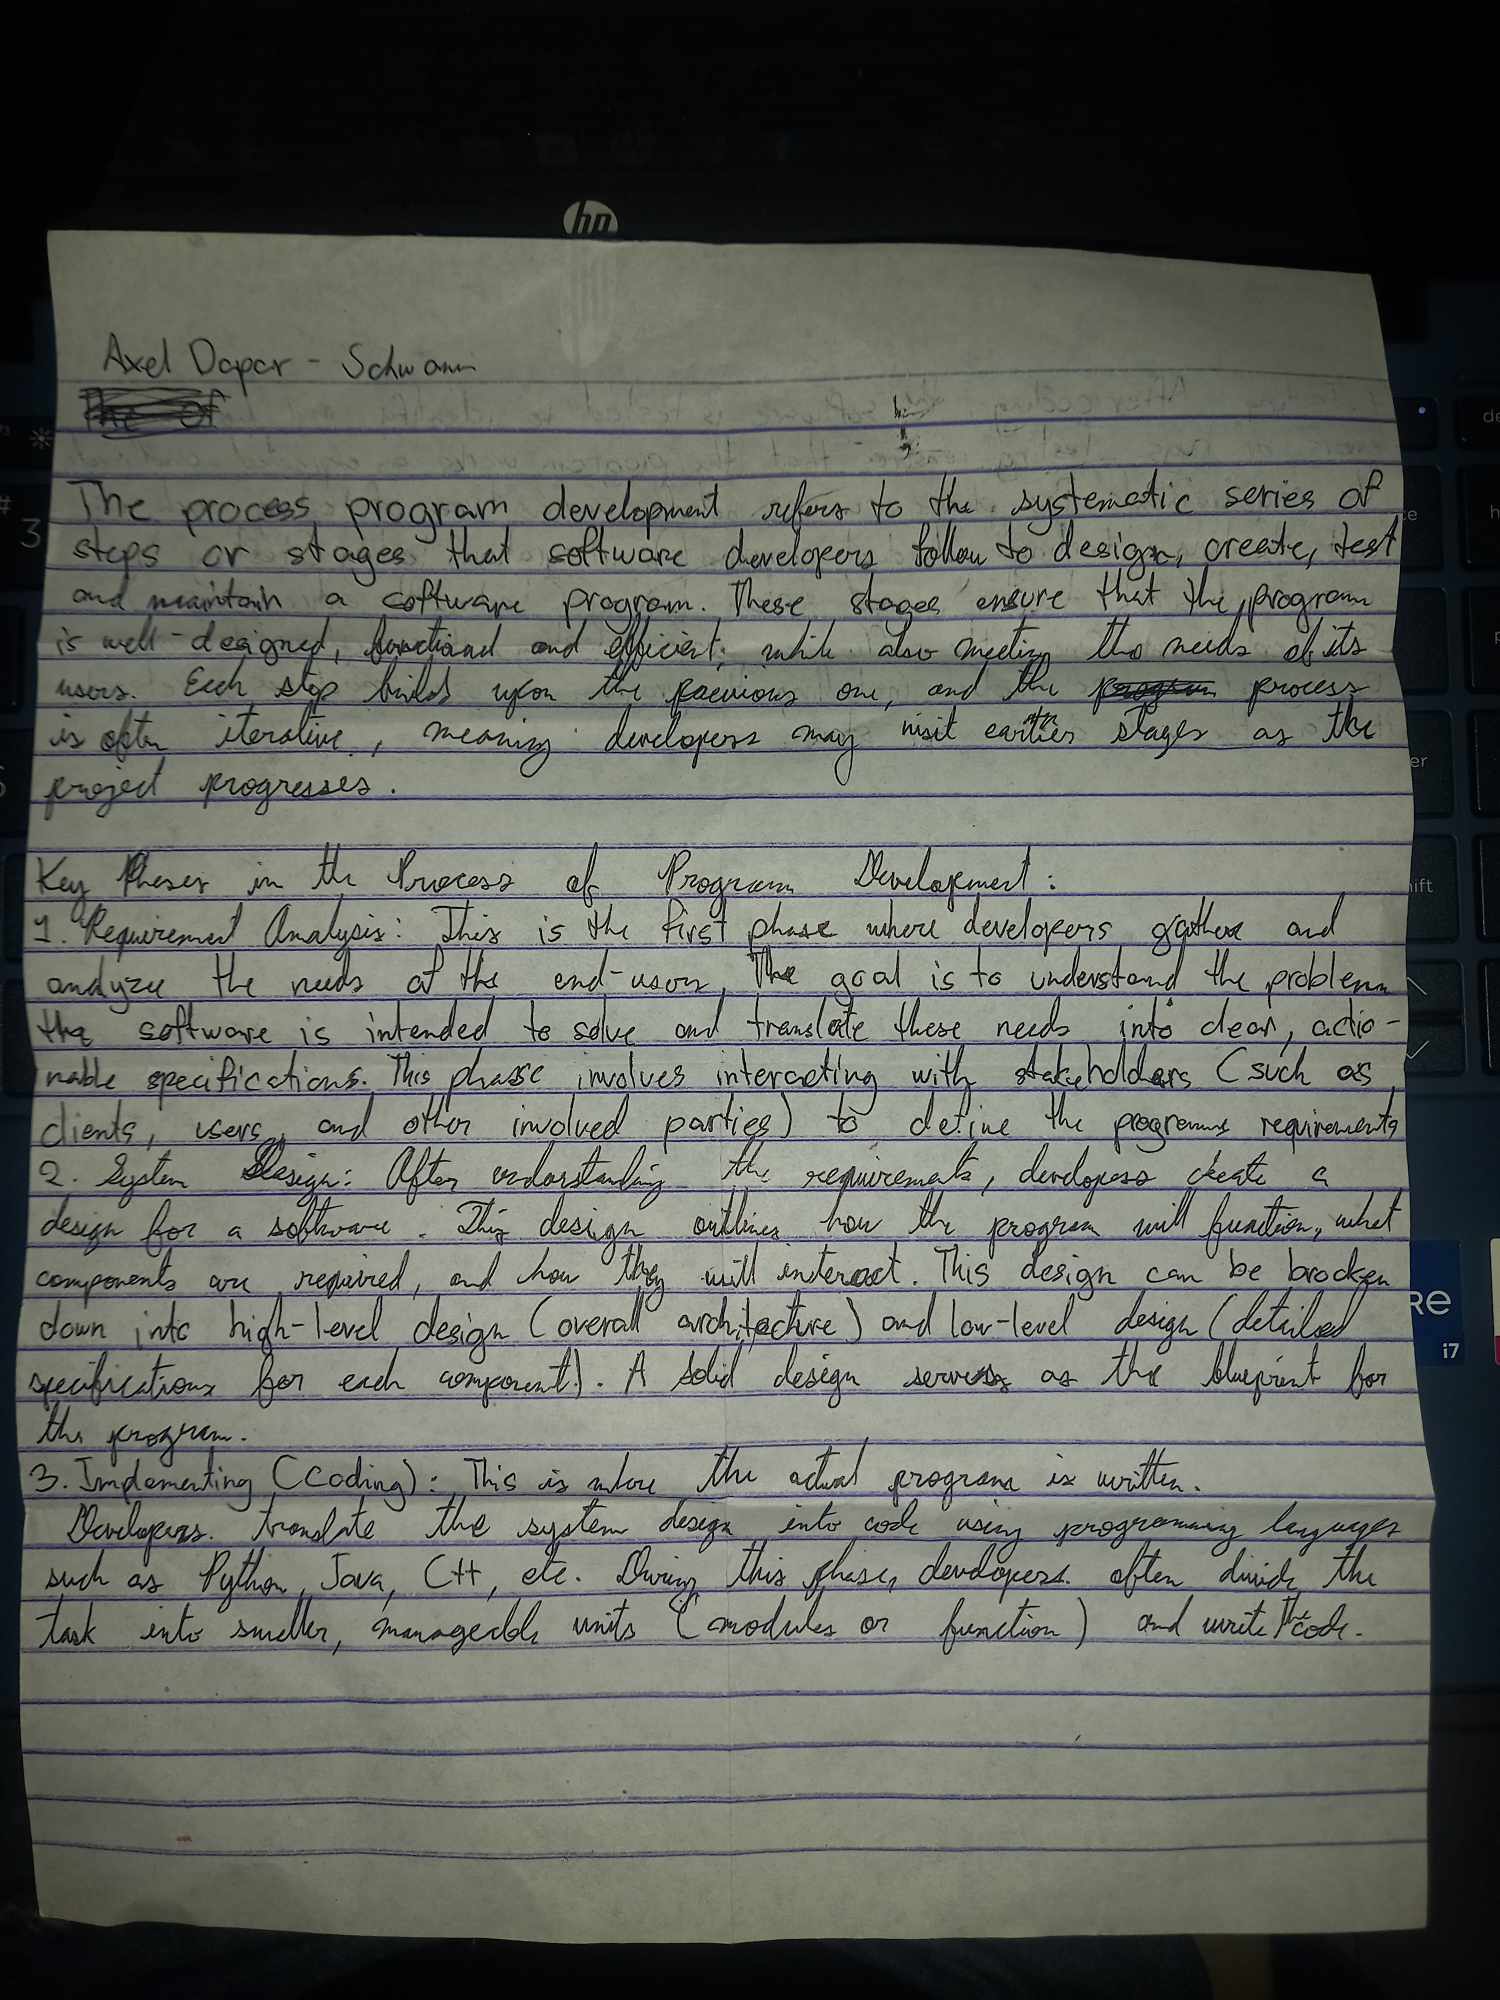 hp
Axel Dapar - Schwann
The process program development refers to the systematic series of
steps or stages that software developers follow to design, create, test
and maintain a software program. These stages ensure that the program
is well-designed, functional and efficient, while also meeting the needs of its
users. Each step builds upon the previous one, and the process
is often iterative, meaning developers may visit earlier stages as the
project progresses.
Key Phases in the Process of Program Development:
1. Requirement Analysis: This is the first phase where developers gather and
analyze the needs of the end-user. The goal is to understand the problem
the software is intended to solve and translate these needs into clear, actio-
nable specifications. This phase involves interacting with stakeholders (such as
clients, users, and other involved parties) to define the programs requirements
2. System Design: After understanding the requirements, developers create a
design for a software. This design outlines how the program will function, what
components are required, and how they will interact. This design can be brocken
down into high-level design (overall architecture) and low-level design (detailed
specifications for each component). A solid design serves as the blueprint for
the program.
3. Implementing (Coding): This is where the actual program is written.
Developers. translate the system design into code using programming languages
such as Python, Java, C++, etc. During this phase, developers. often divide the
task into smaller, manageable units (modules or function) and write the code.
i7